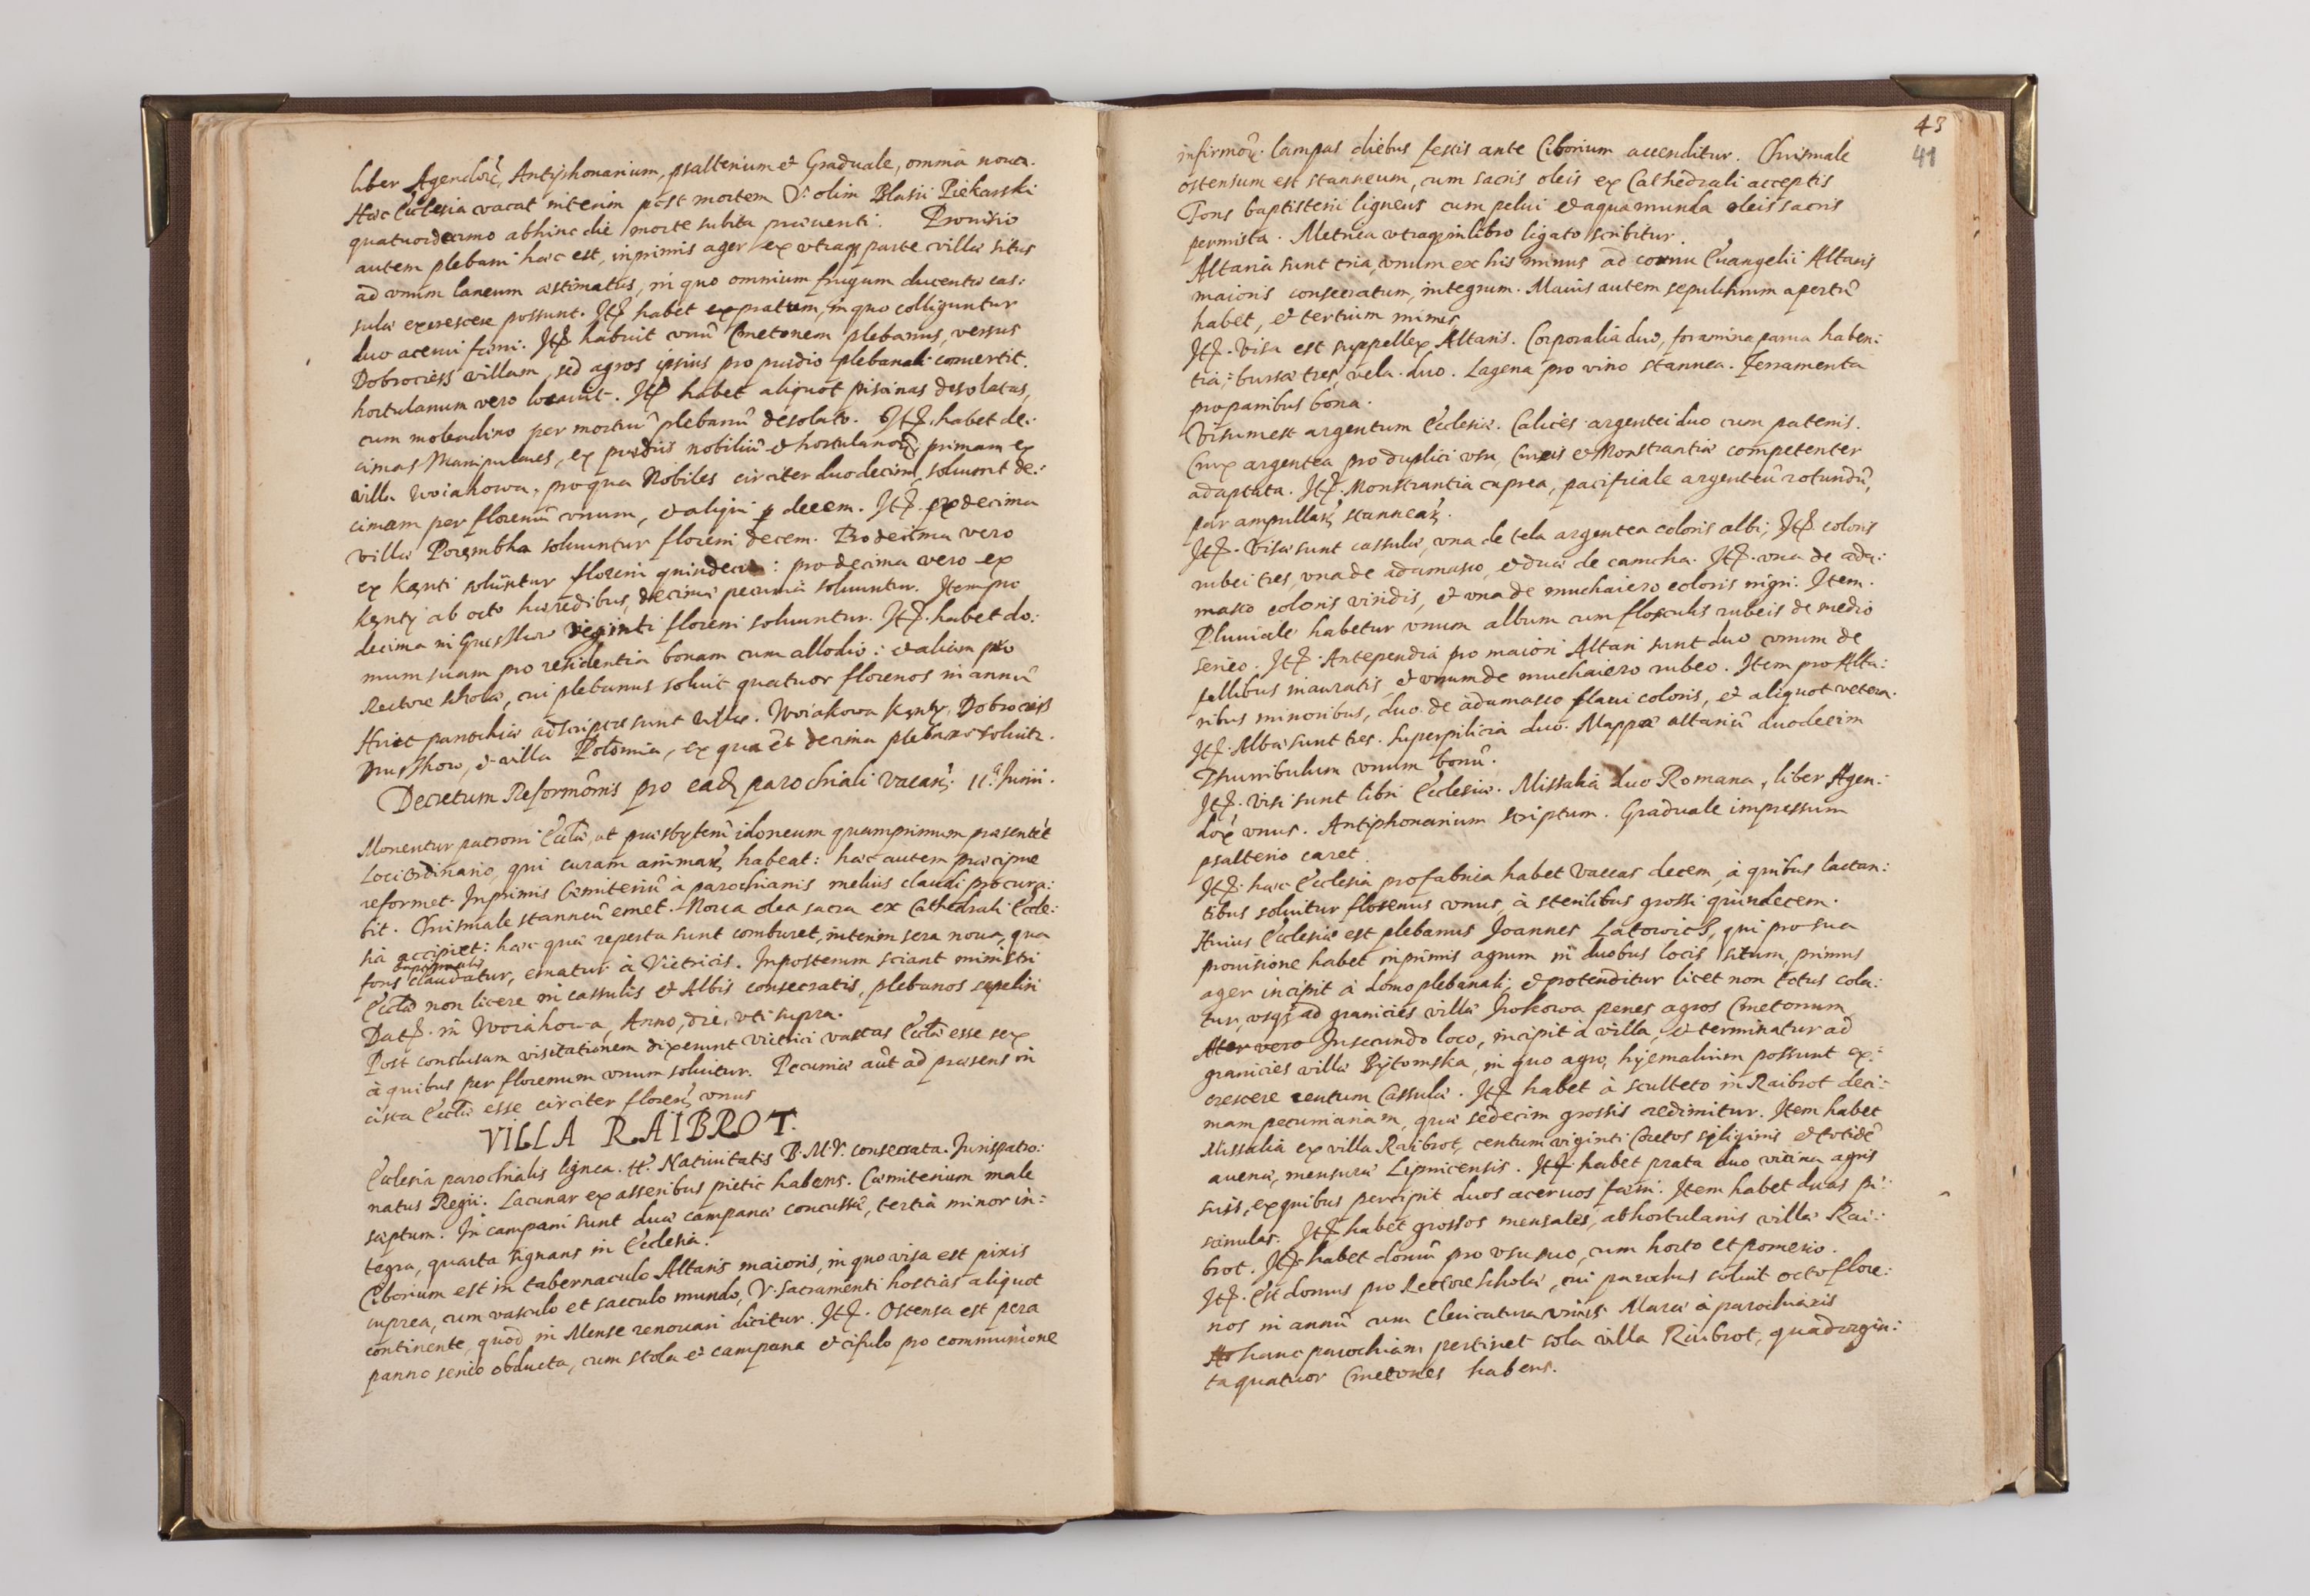 liber Agendor̃, Antiphonarium, psalterium et Graduale, omnia noua.
Hæc Ecclesia vacat interim post mortem V. olim Blasii Piekarski
quatuordecimo abhinc die morte subita præuenti. Prouisio
autem plebani hæc est, inprimis ager ex vtraq parte villæ situs
ad vnum laneum æstimatus, in quo omnium frugum ducentæ cas:
sulæ excrescere possunt. Itẽ habet pratum, in quo colliguntur
duo acerui fæni. Itẽ habuit vnũ Cmetonem plebanus, versus
Dobrociess villam, sed agros ipsius pro prædio plebanali conuertit.
hortulanum vero locauit. Itẽ habet aliquot piscinas desolatas,
cum molendino per mortuũ plebanũ desolato. Itẽ habet de:
cimas Manipulares, ex prædiis nobiliũ et hortulanor̃, primam ex
villa Woiakowa, pro qua Nobiles circiter duodecim, soluunt de:
cimam per florenũ vnum, et aliqui p decem. Itẽ ex decima
villæ Porąmbka soluuntur floreni decem. Pro decima vero
ex Kąnti soluuntur floreni quindecim: pro decima vero ex
Kąnty ab octo hæredibus, decimæ pecuniæ soluuntur. Item pro
decima in Grusskow viginti floreni soluuntur. Itẽ habet do:
mum suam pro residentia bonam cum allodio: et aliam pro
Rectore scholæ, cui plebanus soluit quatuor florenos in annũ
Huic parochiæ adscriptæ sunt villæ. Woiakowa Kąnty, Dobrociess
Drusskow, et villa Połomia, ex qua et decima plebano soluitr.
Decretum Reformõnis pro eadẽ parochiali vacan̄. 11ᵃ Junii.
Monentur patroni Ecclæ, ut præsbyterũ idoneum quamprimum præsentẽt
Loci Ordinario, qui curam animar̃ habeat: hæc autem præcipue
reformet. Inprimis Cæmiteriũ à parochianis melius claudi procura:
bit. Chrismale stanneũ emet. Noua olea sacra ex Cathedrali Eccle:
sia accipiet: hæc quæ reperta sunt comburet, interim sera noua, qua
fons baptismalis claudatur, ematur à Vitricis. Inposterum sciant ministri
Ecclæ non licere in cassulis et Albis consecratis, plebanos sepeliri
Datẽ. in Woiakowa, Anno, die, vti supra.
Post conclusam visitationem dixerunt vitrici vaccas Ecclæ esse sex
à quibus per florenum vnum soluitur. Pecuniæ aũt ad præsens in
cista Ecclæ esse circiter floren̄ vnus
VILLA RAIBROT.
Ecclesia parochialis lignea. tt. Natiuitatis B. M. V. consecrata. Jurispatro:
natus Regii. Lacunar ex asseribus pictis habens. Cæmiterium male
sæptum. In campani sunt duæ campanæ concussæ, tertia minor in:
tegra, quarta signans in Ecclesia.
Ciborium est in tabernaculo Altaris maioris, in quo visa est pixis
cuprea, cum vasculo et sacculo mundo, V. Sacramenti hostias aliquot
continente, quod in Mense renouari dicitur. Itẽ. Ostensa est pera
panno serico obducta, cum stola et campana et cifulo pro communione
43
41
infirmor̃. lampas diebus festis ante Ciborium accenditur. Chrismale
ostensum est stanneum, cum sacris oleis ex Cathedrali acceptis
Fons baptisterii ligneus cum pelui et aqua munda oleis sacris
permista. Metrica vtraq in libro ligato scribitur.
Altaria sunt tria, vnum ex his minus ad cornu Euangelii Altaris
maioris consecratum, integrum. Maius autem sepulchrum apertũ
habet, et tertium minus,
Itẽ. Visa est suppellex Altaris. Corporalia duo, foramina parua haben:
tia: bursæ tres, vela duo. Lagena pro vino stannea. Ferramenta
pro panibus bona.
Visum est argentum Ecclesiæ. Calices argentei duo cum patenis.
Crux argentea pro duplici vsu, Crucis et Monstrantiæ competenter
adaptata. Itẽ. Monstrantia cuprea, pacificale argenteũ rotundũ,
par ampullar̃ stannear̃.
Itẽ. Visæ sunt cassulæ, vna de tela argentea coloris albi, Itẽ coloris
rubei tres, vna de adamasco, et duæ de camcha. Itẽ. vna de ada:
masco coloris viridis, et vna de muchaiero coloris nigri. Item.
Pluuiale habetur vnum album cum flosculis rubeis de medio
serico. Itẽ. Antependia pro maiori Altari sunt duo vnum de
pellibus inauratis, et vnum de muchaiero rubeo. Item pro Alta:
ribus minoribus, duo de adamasco flaui coloris, et aliquot vetera.
Itẽ. Albæ sunt tres. Superpilicia duo. Mappæ altariũ duodecim
Thurribulum vnum bonũ.
Itẽ. Visi sunt libri Ecclesiæ. Missalia duo Romana, liber Agen:
dor̃ vnus. Antiphonarium scriptum. Graduale impressum
psalterio caret.
Itẽ. hæc Ecclesia pro fabrica habet Vaccas decem, à quibus lactan:
tibus soluitur florenus vnus, à sterilibus grossi quindecem.
Huius Ecclesiæ est plebanus Joannes Latowicż, qui pro sua
prouisione habet inprimis agrum in duobus locis situm, primus
ager incipit à domo plebanali, et protenditur licet non totus cola:
tur, vsq ad granicies villæ Iwkowa penes agros Cmetonum
Alter vero In secundo loco, incipit à villa, et terminatur ad
granicies villæ Bytomska, in quo agro, hyemalium possunt ex:
crescere centum Cassulæ. Itẽ habet à sculteto in Raibrot deci:
mam pecuniariam, quæ sedecim grossis redimitur. Item habet
Missalia ex villa Raibrot, centum viginti Coretos siliginis et totidẽ
auenæ, mensuræ Lipnicensis. Itẽ habet prata duo vicina agris
suis, ex quibus percipit duos aceruos fæni. Item habet duas pi:
scinulas. Itẽ habet grossos mensales, ab hortulanis villæ Rai:
brot. Itẽ habet domũ pro vsu suo, cum horto et pomerio.
Itẽ. Est domus pro Rectore scholæ, cui parochus soluit octo flore:
nos in annũ cum Clericatura à parochianis
Ad hanc parochiam pertinet sola villa Raibrot, quadragin:
ta quatuor Cmetones habens.